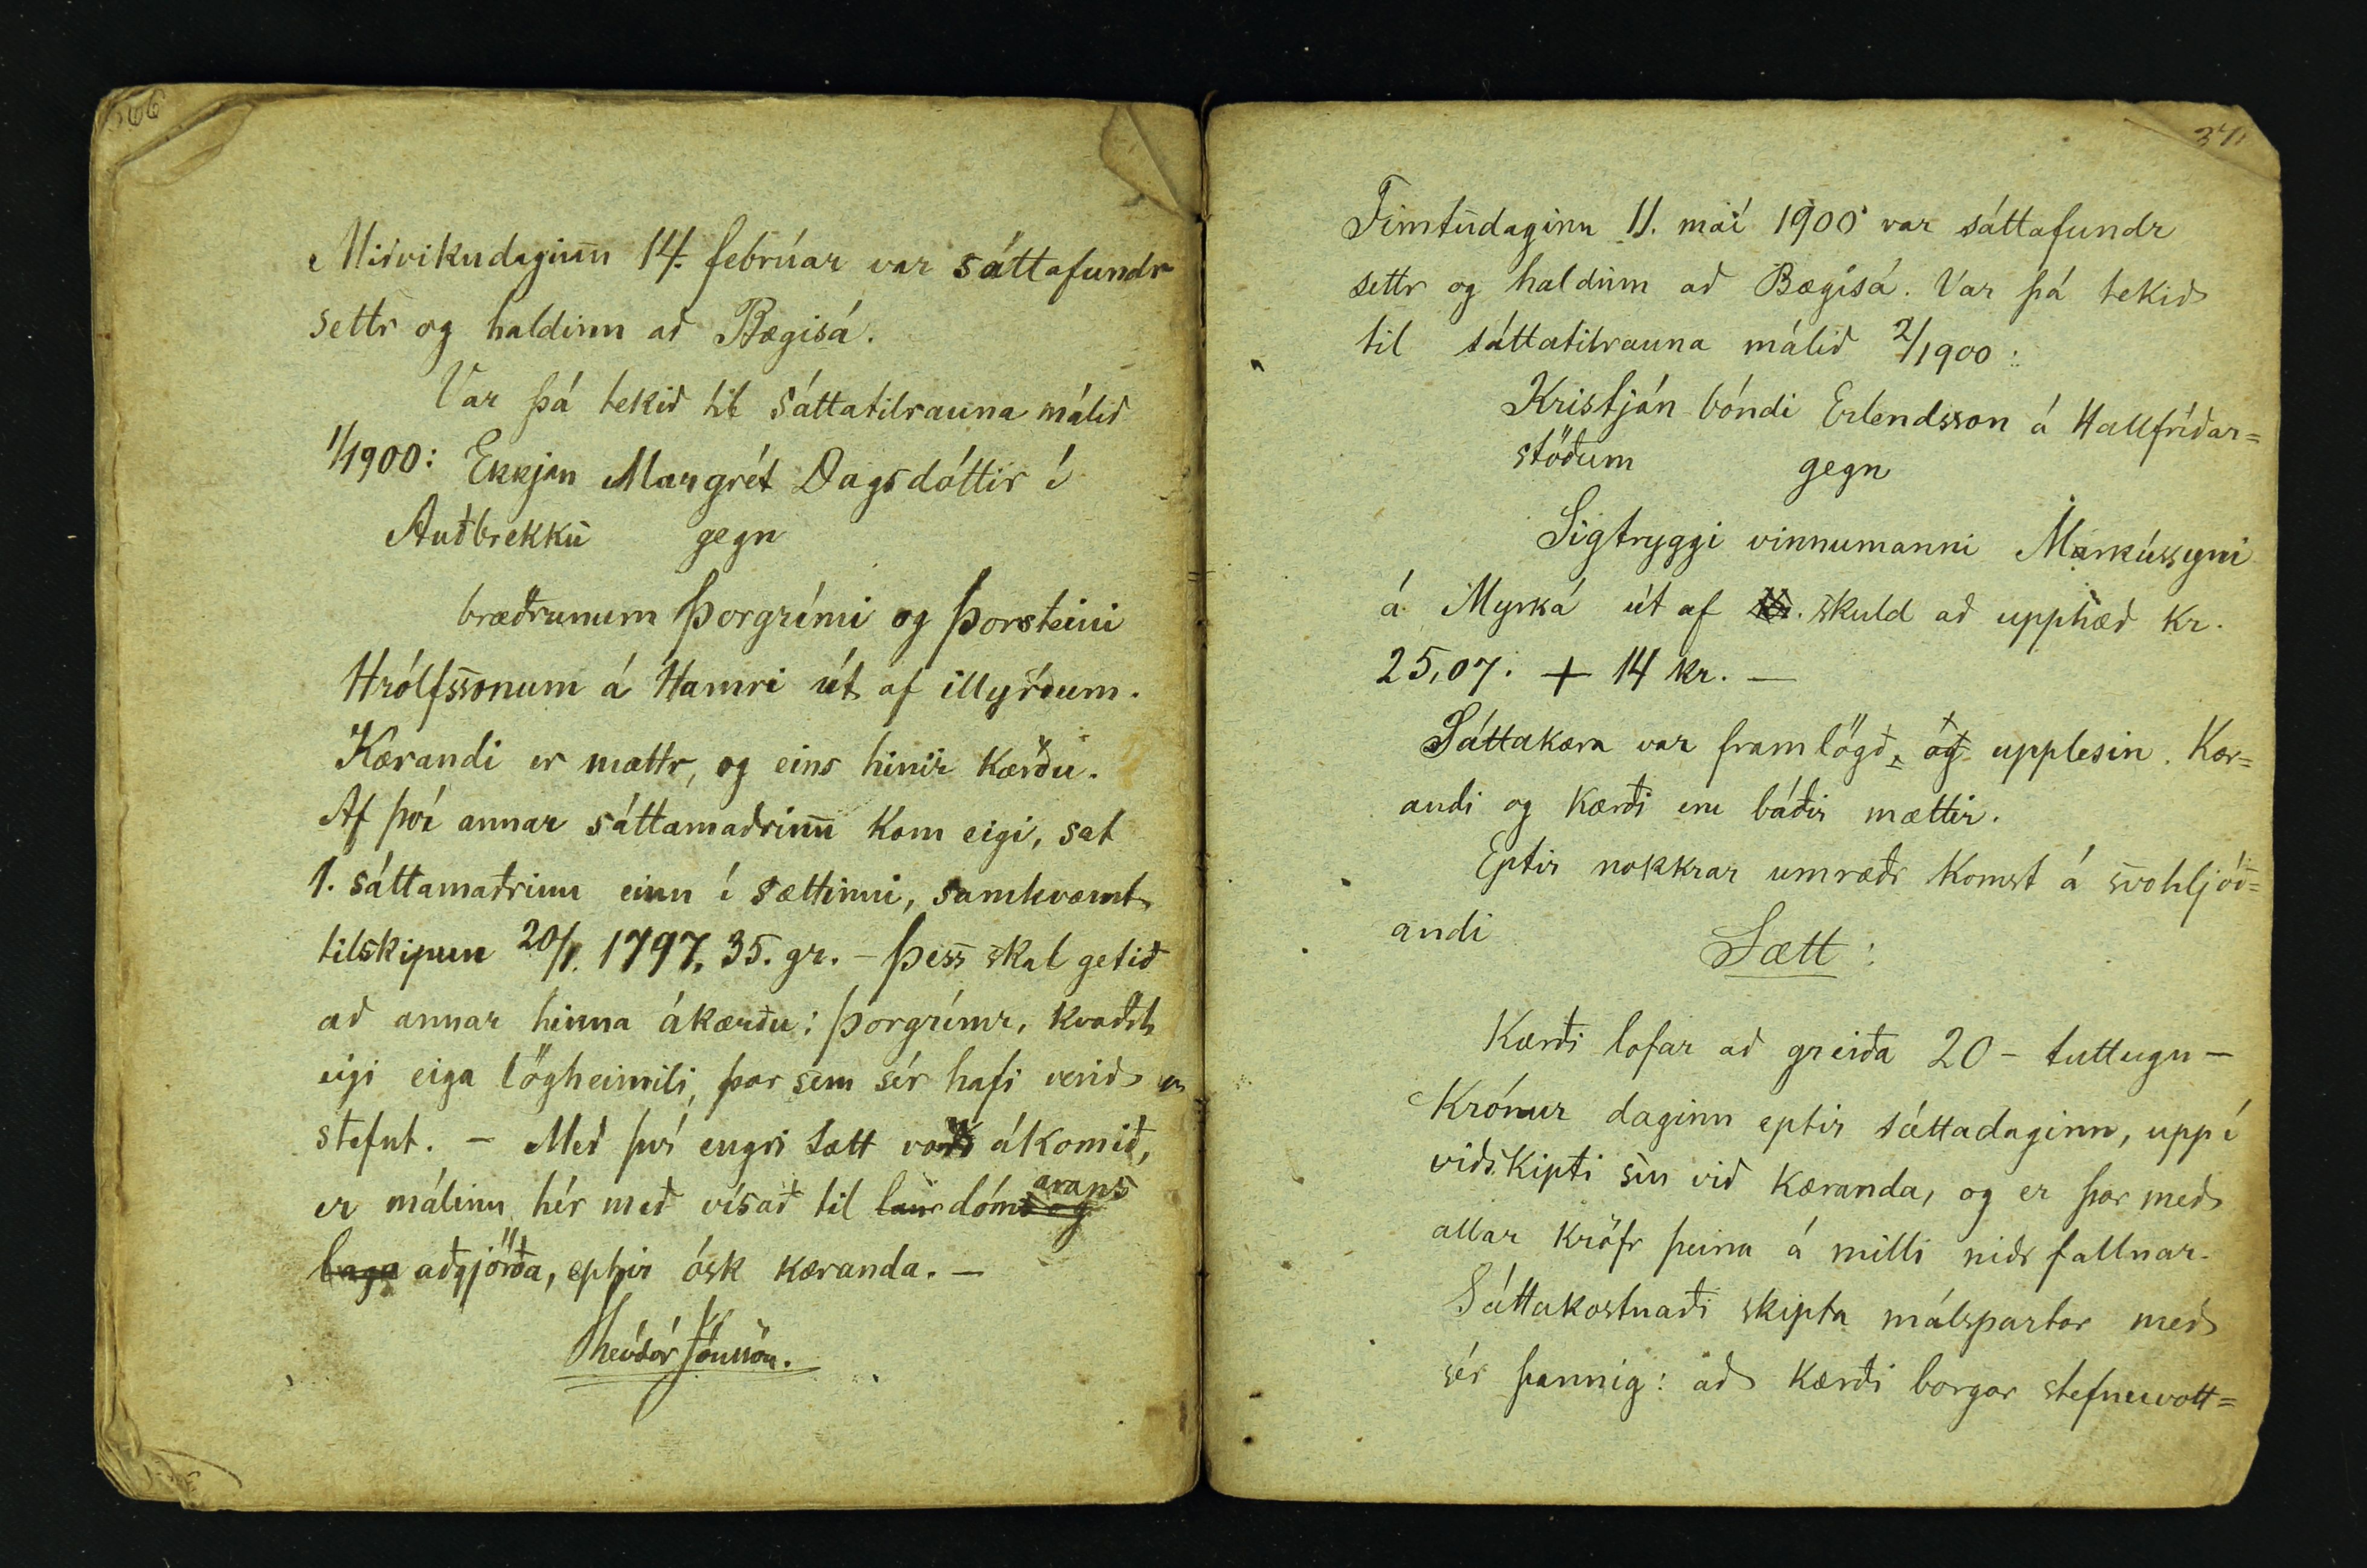 Miðvikudaginn 14. febrúar var sáttafundr
settr og haldinn að Bægisá.
Var þá tekið til sáttatilrauna málið
1/1900: Ekkjan Margrét Dagsdóttir í
Auðbrekku gegn
bræðrunum Þorgrími og Þorsteini
Hrólfssonum á Hamri út af illyrðum.
Kærandi er mættr, og eins hinir kærðu.
Af því annar sáttamaðrinn kom eigi, sat
1. sáttamaðrinn einn í sættinni, samkvæmt
tilskipun 20/1. 1797, 35. gr. - Þess skal getið
að annar hinna ákærðu: Þorgrímr, kvaðst
eigi eiga lögheimili, þar sem sér hafi verið
stefnt. - Með því engri sætt varð ákomið,
er málinu hér með vísað til dómarans
laga aðgjörða, eptir ósk kæranda. -
Theódór Jónsson.
371
Fimtudaginn 11. maí 1900 var sáttafundr
settr og haldinn að Bægisá. Var þá tekið
til sáttatilrauna málið 2/1900:
Kristján bóndi Erlendsson á Hallfríðar=
stöðum gegn
Sigtryggi vinnumanni Markússyni
á Myrká út af skuld að upphæð kr.
25,07. + 14 kr. -
Sáttakæra var framlögð, og upplesin. Kær=
andi og kærði eru báðir mættir.
Eptir nokkrar umræðr komst á svohljóð=
andi
Sætt:
Kærði lofar að greiða 20 - tuttugu -
Krónur daginn eptir sáttadaginn, upp í
viðskipti sín við kæranda, og er þar með
allar kröfr þeirra á milli niðr fallnar.
Sáttakostnaði skipta málspartar með
sér þannig: að kærði borgar stefnuvott=